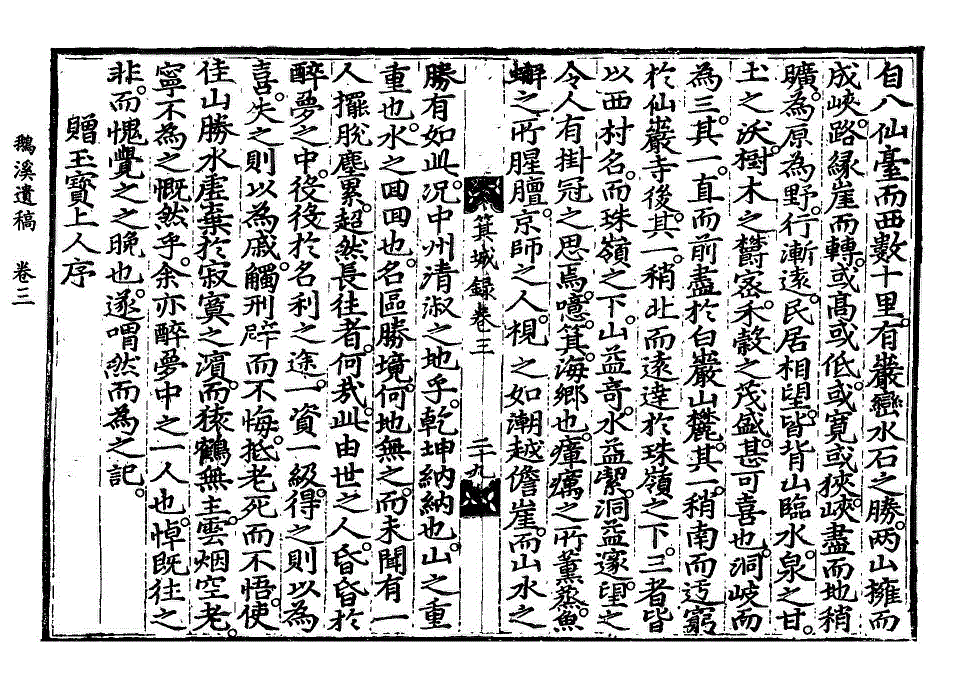 自八仙臺而西數十里。有巖巒水石之勝。兩山擁而
成峽。路緣崖而轉。或高或低。或寬或狹。峽盡而地稍
曠。爲原爲野。行漸遠。民居相望。皆背山臨水。泉之甘。
土之沃。樹木之欝密。禾糓之茂盛。甚可喜也。洞岐而
爲三。其一。直而前盡於白巖山麓。其一。稍南而迃窮
於仙巖寺後。其一。稍北而遠逹於珠嶺之下。三者皆
以西村名。而珠嶺之下。山益奇。水益㓗。洞益邃。望之
令人有掛冠之思焉。噫。箕。海鄕也。瘴癘之所薰蒸。魚
蠏之所腥膻。京師之人。視之如潮越儋崖。而山水之
箕城錄卷三 二十九
勝有如此。况中州淸淑之地乎。乾坤納納也。山之重
重也。水之回回也。名區勝境。何地無之。而未聞有一
人擺脫塵累。超然長往者。何㢤。此由世之人。昏昏於
醉夢之中。役役於名利之途。一資一級。得之則以爲
喜。失之則以爲戚。觸刑辟而不悔。抵老死而不悟。使
佳山勝水虛棄於寂寞之濵。而猿鶴無主。雲烟空老。
寧不爲之慨然乎。余亦醉夢中之一人也。悼旣往之
非。而愧覺之之晚也。遂喟然而爲之記。
贈玉寶上人序
鵝溪遺稿 卷三